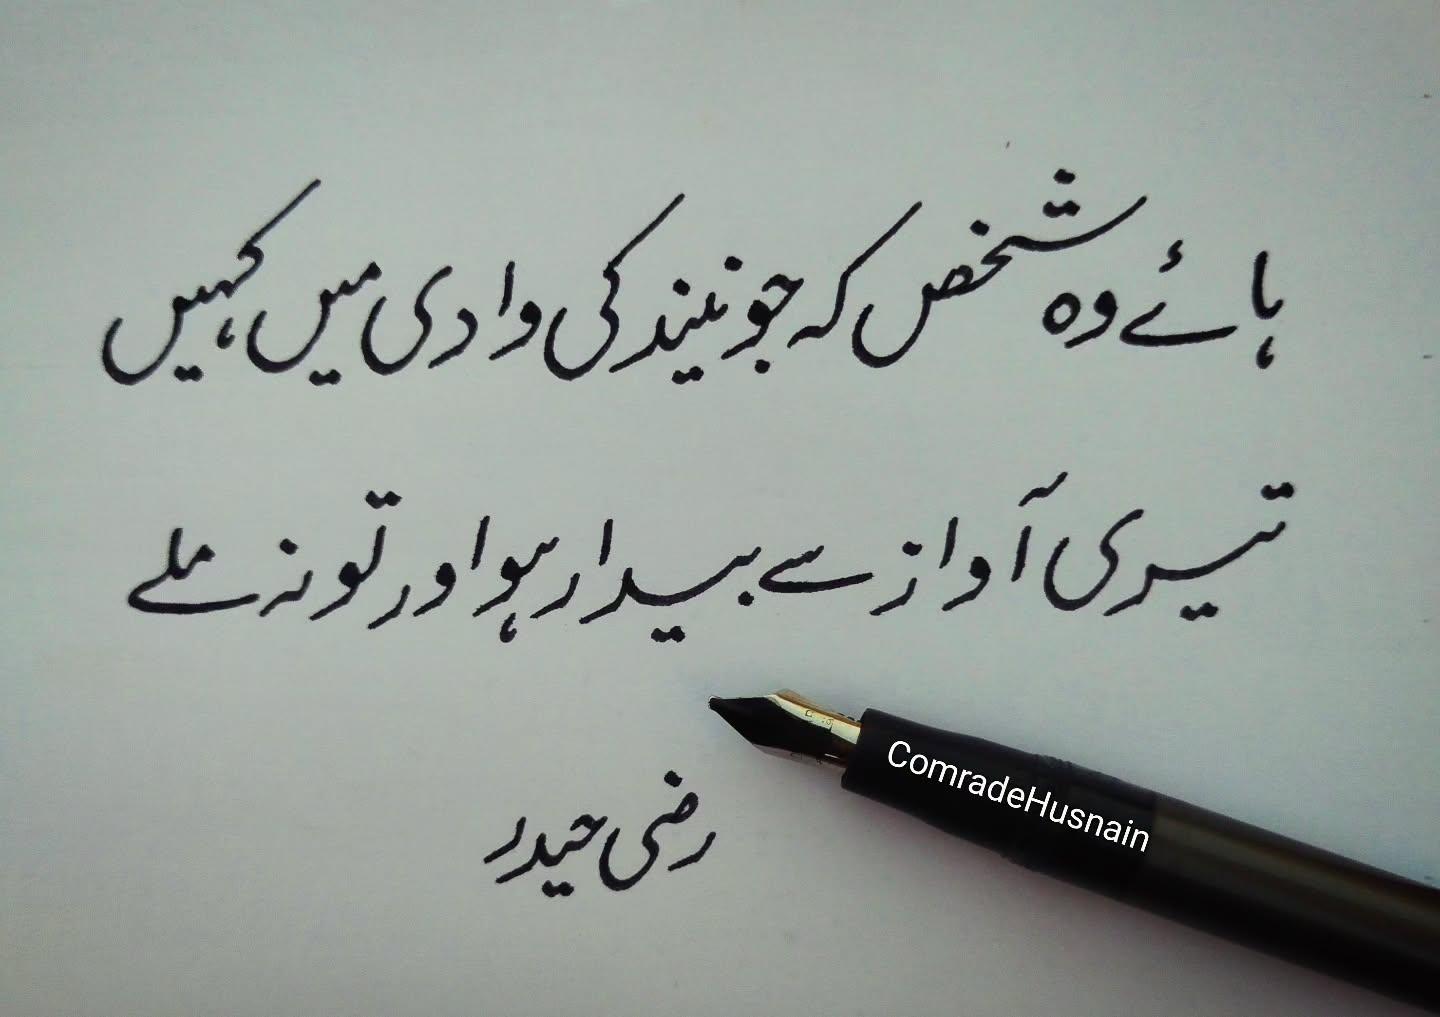 ہائے وہ شخص کہ جو نیند کی وادی میں کہیں
تیری آواز سے بیدار ہو اور تو نہ ملے
رضی حیدر
ComradeHusnain